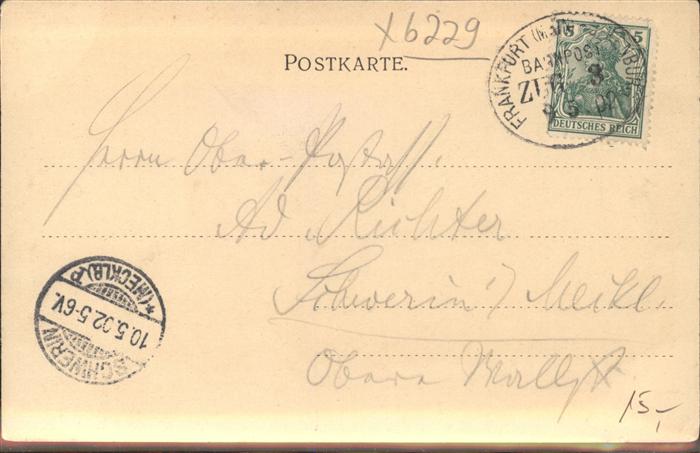 x6229
POSTKARTE.
5 5
DEUTSCHES REICH
FRANKFURT (MAIN)
BAHNPOST
ZUG 3
9 5 02
Herrn Ober-Postass.
Ad Richter
Schwerin i/ Meckl.
Obere Wallst
SCHWERIN
10.5.02.5-6V.
*(MECKLB)P
15,-